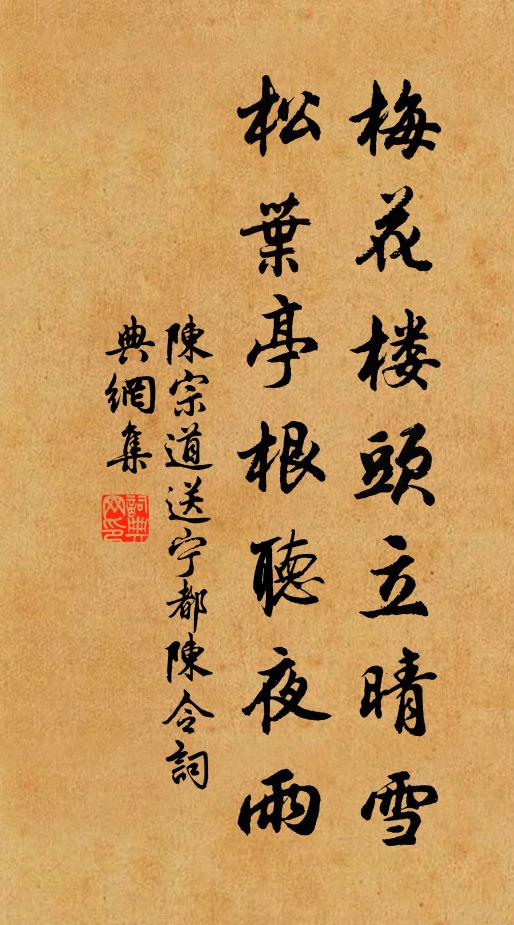 梅花楼頭立晴雪
松葉亭根聽夜雨
陳宗道送宁都陳令詞
典網集
詞典網印